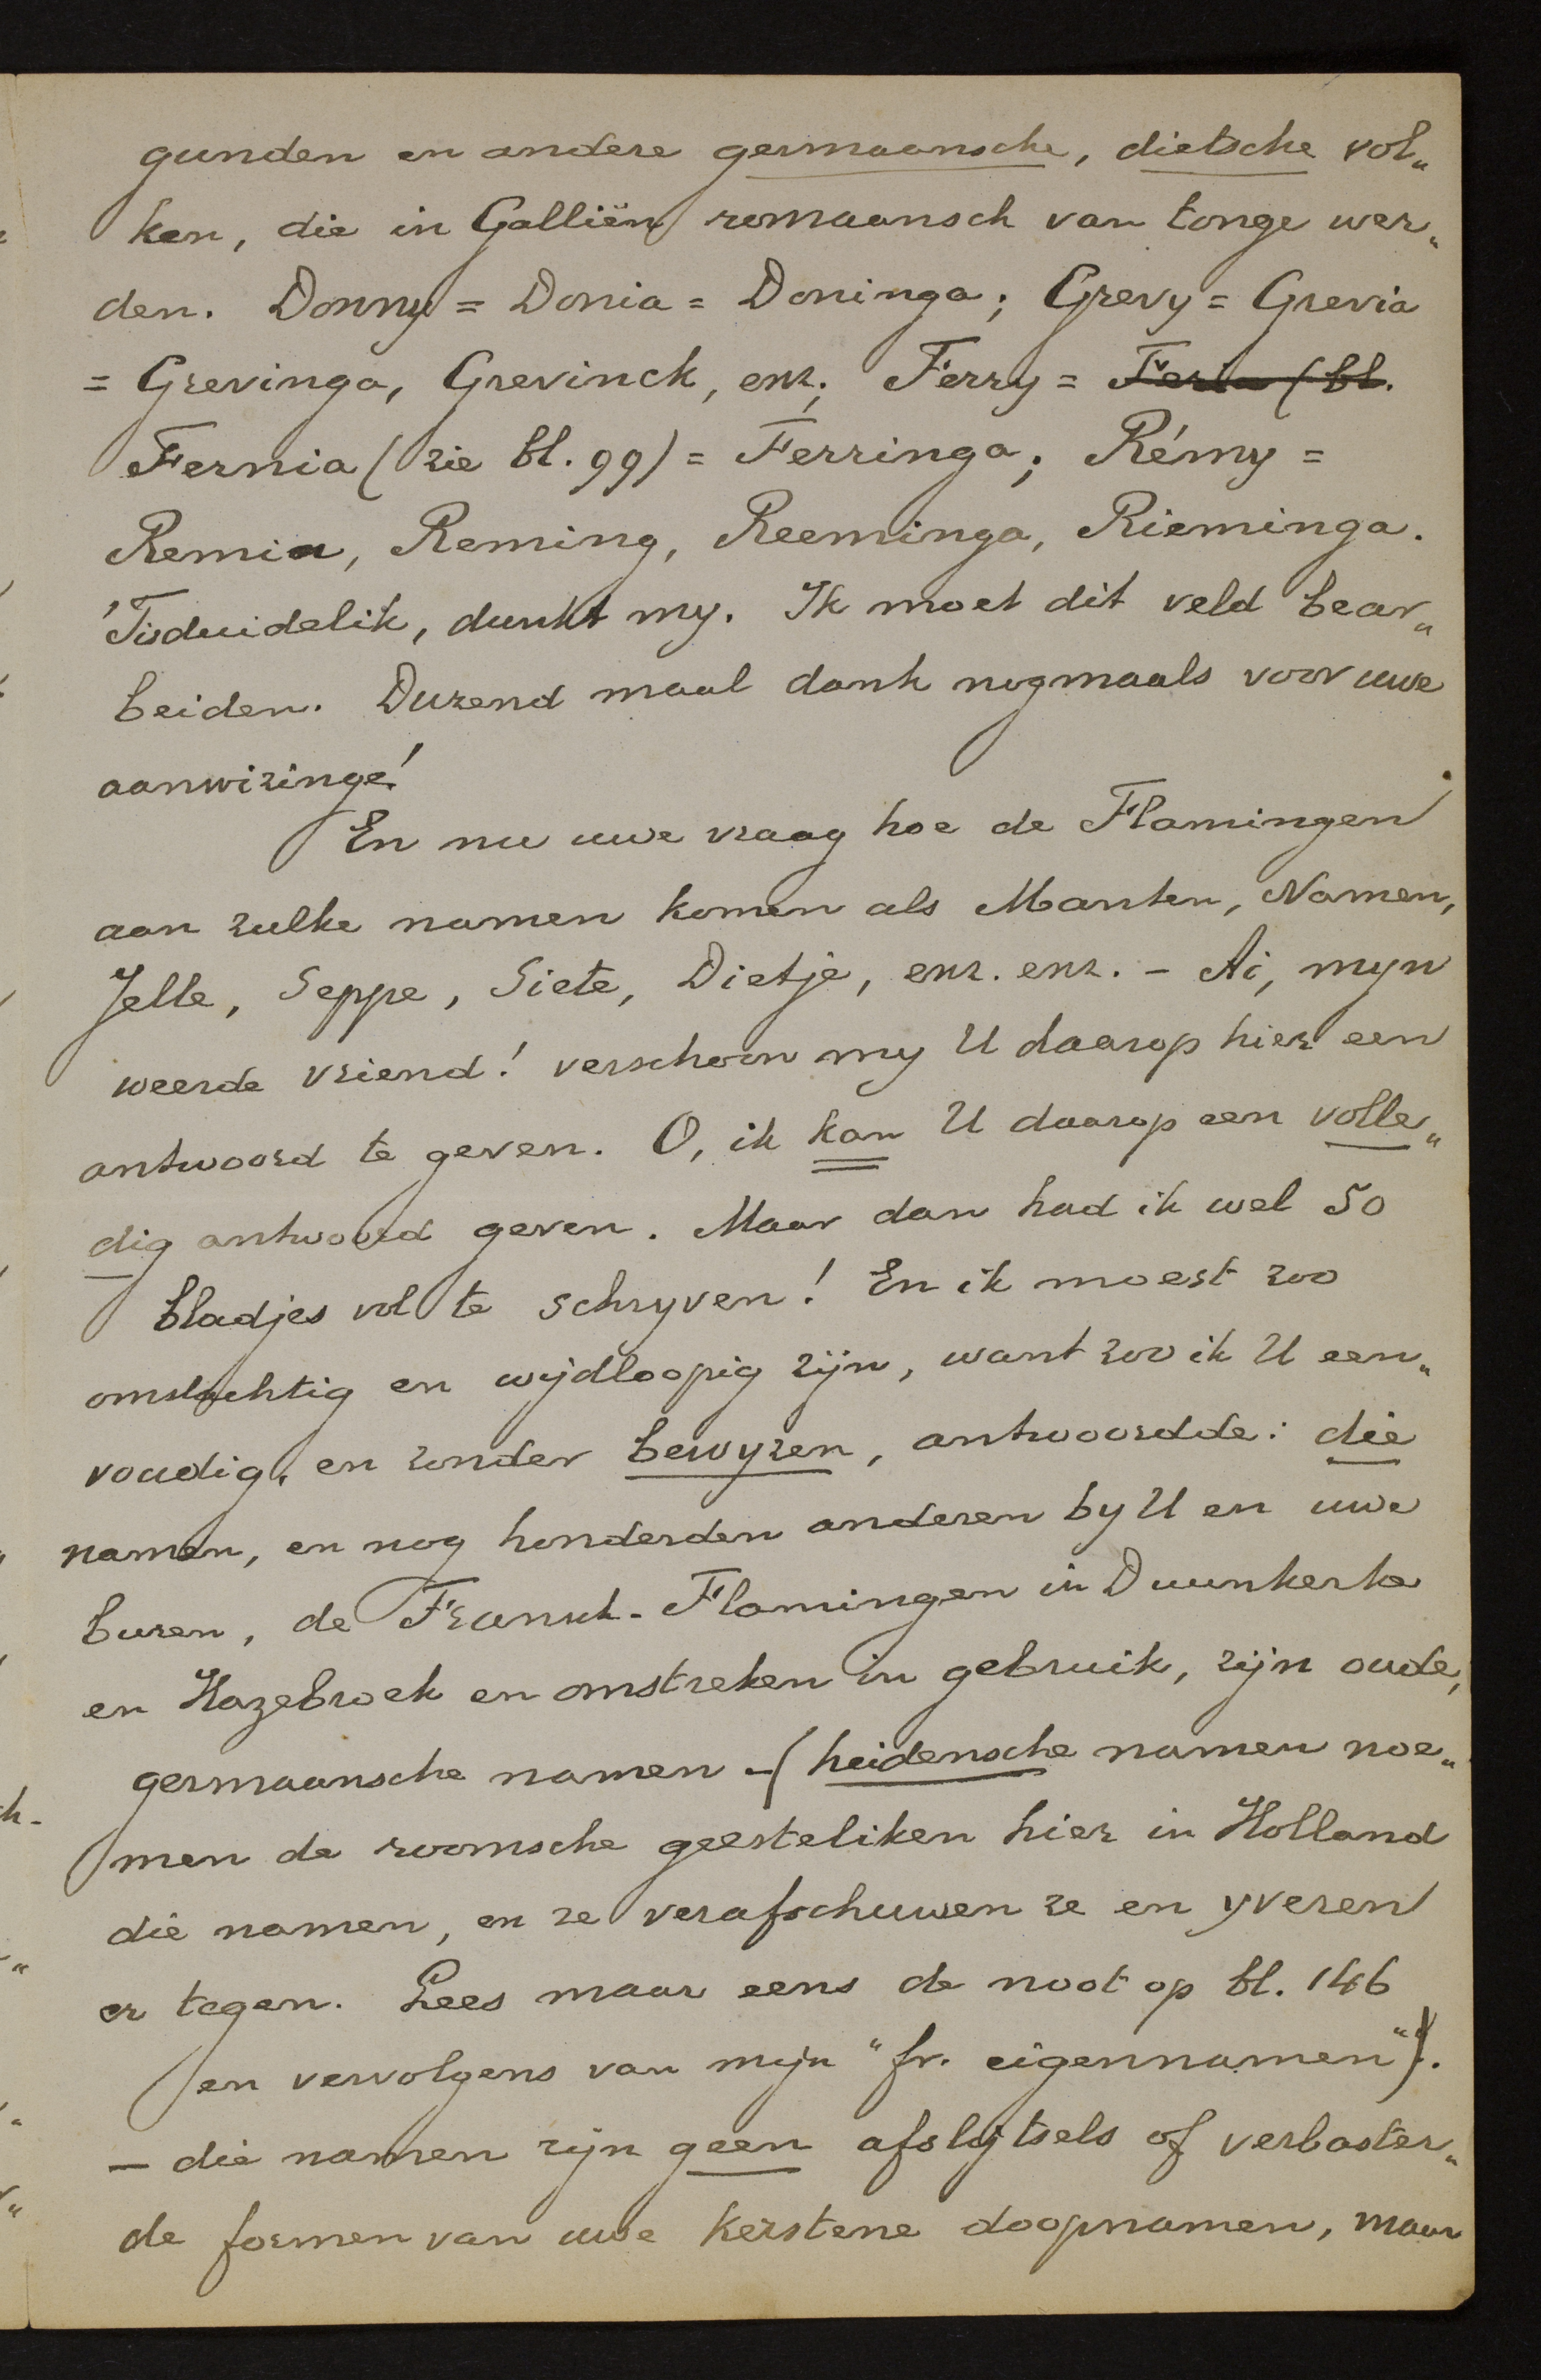 gunden en andere germaansche, dietsche vol„
ken, die in Galliën romaansch van tonge wer„
den. Donny = Donia = Doninga; Grevy = Grevia
= Grevinga, Grevinck, enz; Ferry = Feria (bl.
Fernia (zie bl. 99) = Ferringa; Rémy =
Remia, Reming, Reeminga, Rieminga.
'Tis duidelik, dunkt my. Ik moet dit veld bear„
beiden. Duzend maal dank nogmaals voor uwe
aanwizinge!
En nu uwe vraag hoe de Flamingen
aan zulke namen komen als Manten, Namen,
Jelle, Seppe, Siete, Dietje, enz. enz. - Ai, myn
weerde vriend! verschoon my U daarop hier een
antwoord te geven. O, ik kan U daarop een volle„
dig antwoord geven. Maar dan had ik wel 50
bladjes vol te schryven! En ik moest zoo
omslachtig en wijdloopig zijn, want zoo ik U een„
voudig, en zonder bewyzen, antwoordde: die
namen, en nog honderden anderen by U en uwe
buren, de Fransch-Flamingen in Duunkerke
en Hazebroek en omstreken in gebruik, zijn oude,
germaansche namen - (heidensche namen noe„
men de roomsche geesteliken hier in Holland
die namen, en ze verafschuwen ze en yveren
er tegen. Lees maar eens de noot op bl. 146
en vervolgens van mijn "fr. eigennamen").
- die namen zijn geen afslijtsels of verbaster„
de formen van uwe kerstene doopnamen, maar